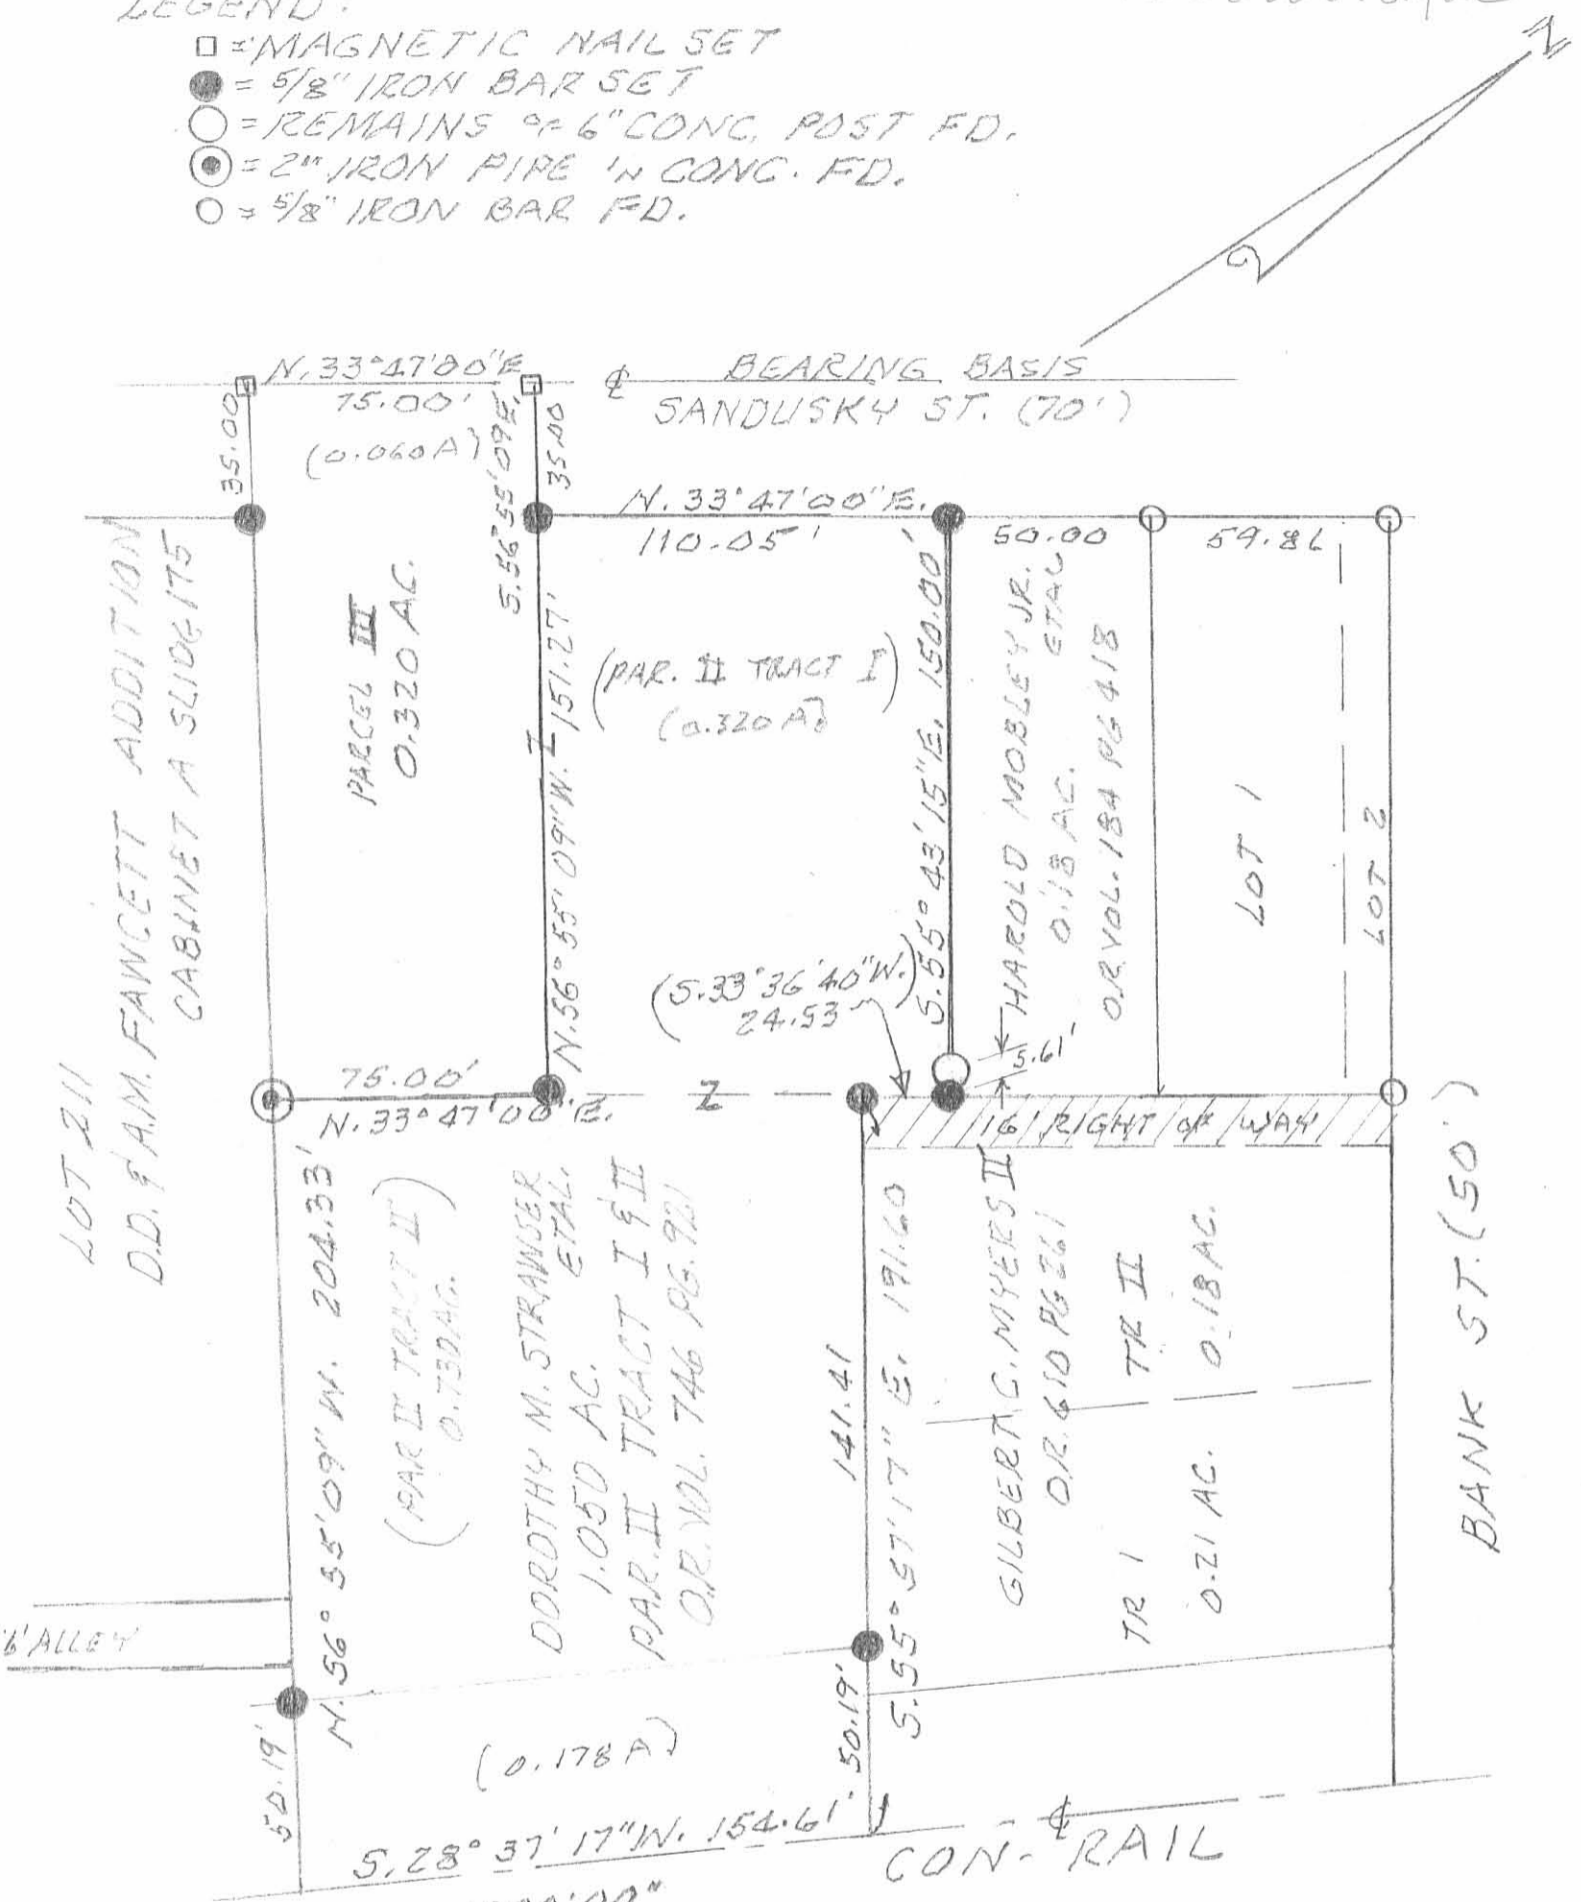 LEGEND:
□ = MAGNETIC NAIL SET
● = 5/8" IRON BAR SET
○ = REMAINS OF 6" CONC. POST FD.
◉ = 2" IRON PIPE IN CONC. FD.
○ = 5/8" IRON BAR FD.
N
N. 33°47'00"E.
75.00'
(0.060A)
35.00
S.56°55'09"E.
35.00
℄
BEARING BASIS
SANDUSKY ST. (70')
N. 33°47'00"E.
110.05'
50.00
59.86
LOT 211
D.D. & A.M. FAWCETT ADDITION
CABINET A SLIDE 175
PARCEL III
0.320 AC.
N.56°55'09"W. 151.27'
(PAR. II TRACT I)
(0.320 A)
S.55°43'15"E. 150.00'
HAROLD MOBLEY JR.
ETAL
0.18 AC.
O.R. VOL. 184 PG 418
LOT 1
LOT 2
(S.33°36'40"W.)
24.53
5.61'
75.00'
N.33°47'00"E.
Z
16' RIGHT OF WAY
N.56°55'09"W. 204.33'
(PAR II TRACT II)
0.730AC.
DOROTHY M. STRAWSER
ETAL.
1.050 AC.
PAR. II TRACT I & II
O.R. VOL. 746 PG. 921
141.41
S.55°57'17"E. 191.60
GILBERT C. MYERS II
O.R. 610 PG 261
TR II
0.18 AC.
TR 1
0.21 AC.
BANK ST. (50')
6' ALLEY
50.19'
(0.178 A)
50.19'
S.28°37'17"W. 154.61'
℄
CON-RAIL